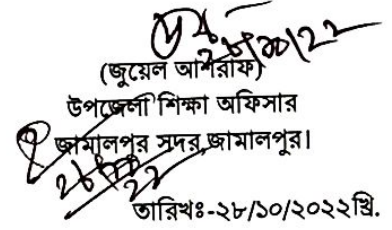 ২৮/১০/২২
(জুয়েল আশরাফ)
উপজেলা শিক্ষা অফিসার
জামালপুর সদর,জামালপুর।
তারিখঃ-২৮/১০/২০২২খ্রি.